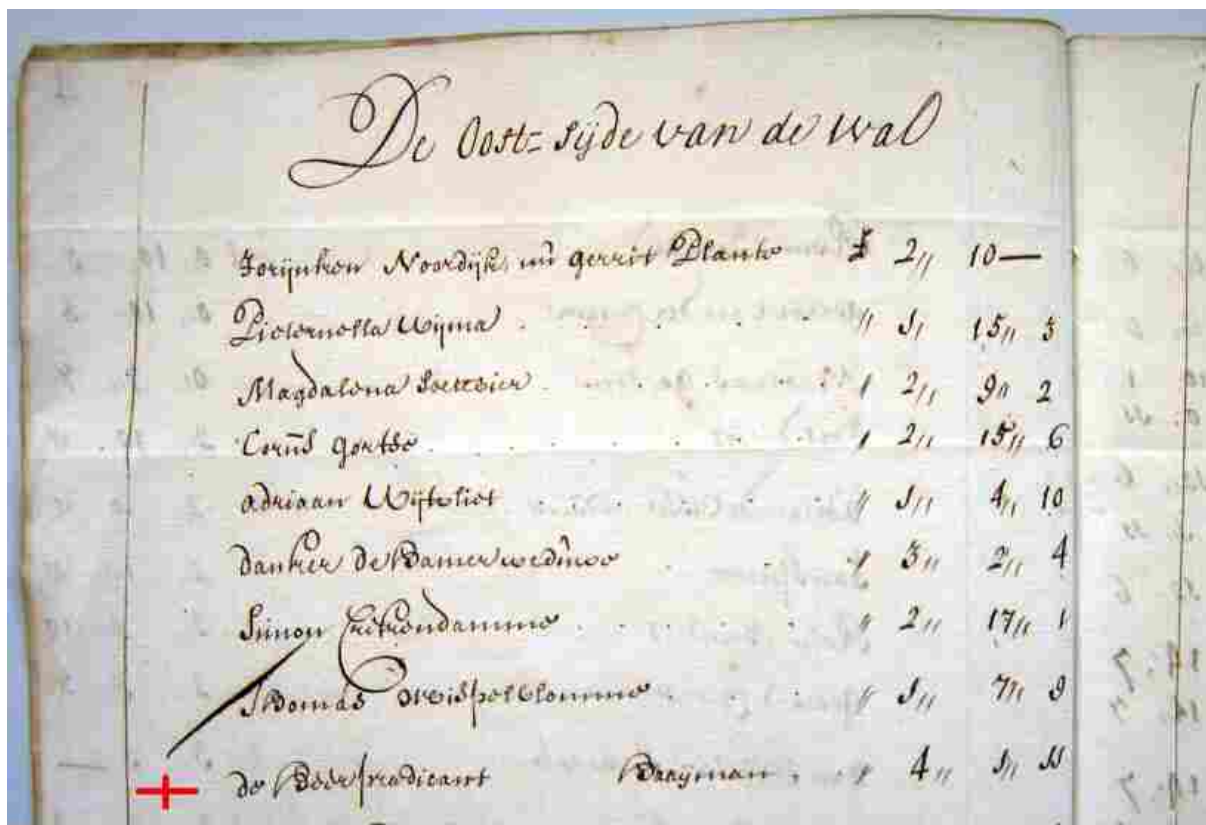 De Oost= Sijde van de wal
Jorijnken Noordijk, nū gerrit Planke £ 2 // 10 —
Pieternella Wijma . . . . . . // 1 // 15 // 5
Magdalena . . . . . . // 2 // 9 // 2
Corn̄s goetse . . . . . . // 2 // 15 // 6
adriaan Wijkvliet . . . . . . // 1 // 4 // 10
danker de Bamer wed̄uwe // 3 // 2 // 4
Simon . . . . . . // 2 // 17 // 1
Thomas Weispelblomme . . . // 1 // 7 // 9
de Heer predicant Baayman . . // 4 // 1 // 11